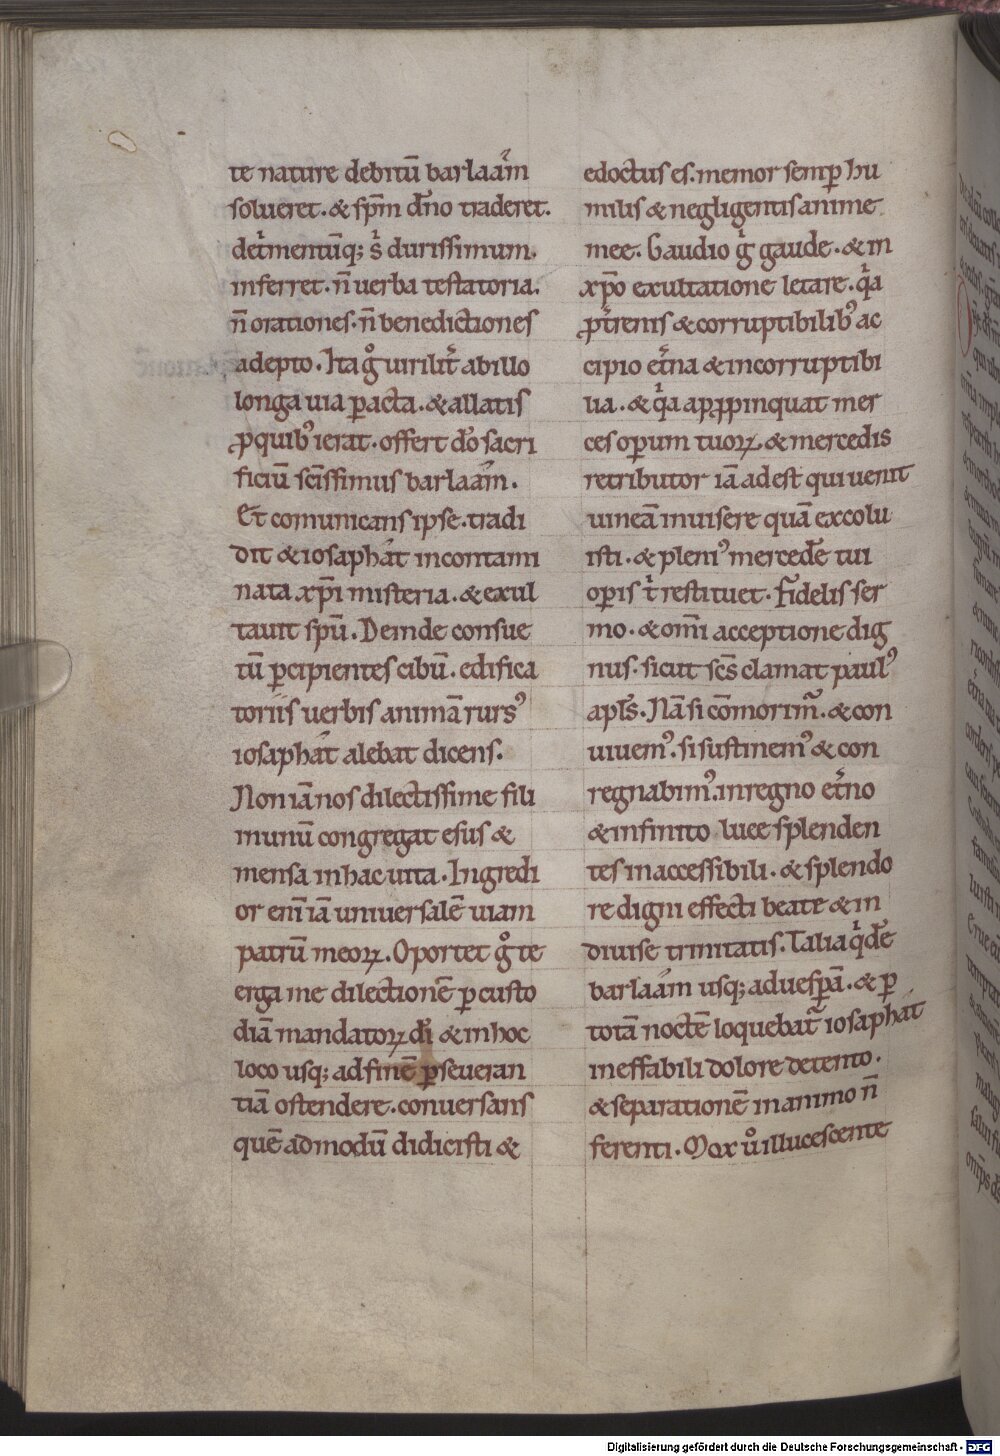 te nature debitū barlaam
solueret. & spm̄ dn̄o traderet.
det̓mentūq; s̓ durissimum.
inferret. n̄ uerba testatoria.
n̄ orationes. n̄ benedictiones
adepto. Ita gͦ uirilit̓ ab illo
longa uia ꝑacta. & allatis
ꝓ quibꝰ ierat. offert dō sacri
ficiū scīssimus barlaam.
Et comunicans ipse. tradi
dit & iosaphat incontami
nata xp̄i misteria. & exul
tauit spū. Deinde consue
tū ꝑcipientes cibū. edifica
toriis uerbis animā rursꝰ
iosaphat alebat dicens.
Non iā nos dilectissime fili
munū congregat esus &
mensa in hac uita. Ingredi
or enī iā uniuersalē uiam
patrū meoꝝ. Oportet gͦ te
erga me dilectionē ꝑ custo
diā mandatoꝝ dī & in hoc
loco usq; ad finē ꝑseueran
tiā ostendere. conuersans
quē admodū didicisti &
edoctus es. memor semꝑ hu
milis & negligentis anime
mee. Gaudio gͥ gaude. & in
xp̄o exultatione letare. qͥa
ꝓ t̓renis & corruptibilibꝰ ac
cipio et̓na & incorruptibi
lia. & qͥa apꝓpinquat mer
ces oꝑum tuoꝝ & mercedis
retributor iā adest qui uenit
uineā inuisere quā excolu
isti. & pleniꝰ mercedē tui
oꝑis t̓ restituet. Fidelis ser
mo. & om̄i acceptione dig
nus. sicut scs̄ clamat paulꝰ
apls̄. Nā si cōmorim̃. & con
uiuemꝰ. si sustinemꝰ & con
regnabimꝰ. in regno et̓no
& infinito luce splenden
tes inaccessibili. & splendo
re digni effecti beate & in
diuise trinitatis. Talia qͥdē
barlaam usq; ad uesꝑā. & ꝑ
totā noctē loquebat̃ iosaphat
ineffabili dolore detento.
& separationē in animo n̄
ferenti. Mox uͦ illucescente